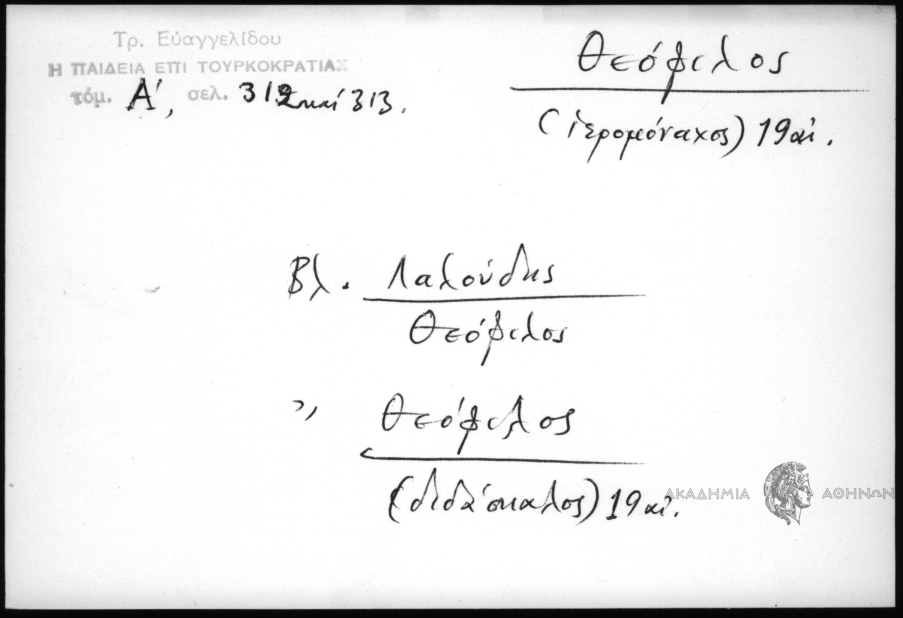 Τρ. Εὐαγγελίδου
Η ΠΑΙΔΕΙΑ ΕΠΙ ΤΟΥΡΚΟΚΡΑΤΙΑΣ
τόμ. Α', σελ. 312 καί 313.
Θεόφιλος
(ἱερομόναχος) 19 αἰ.
Βλ. Λαλούδης
Θεόφιλος
〃 Θεόφιλος
(διδάσκαλος) 19 αἰ.
ΑΚΑΔΗΜΙΑ ΑΘΗΝΩΝ